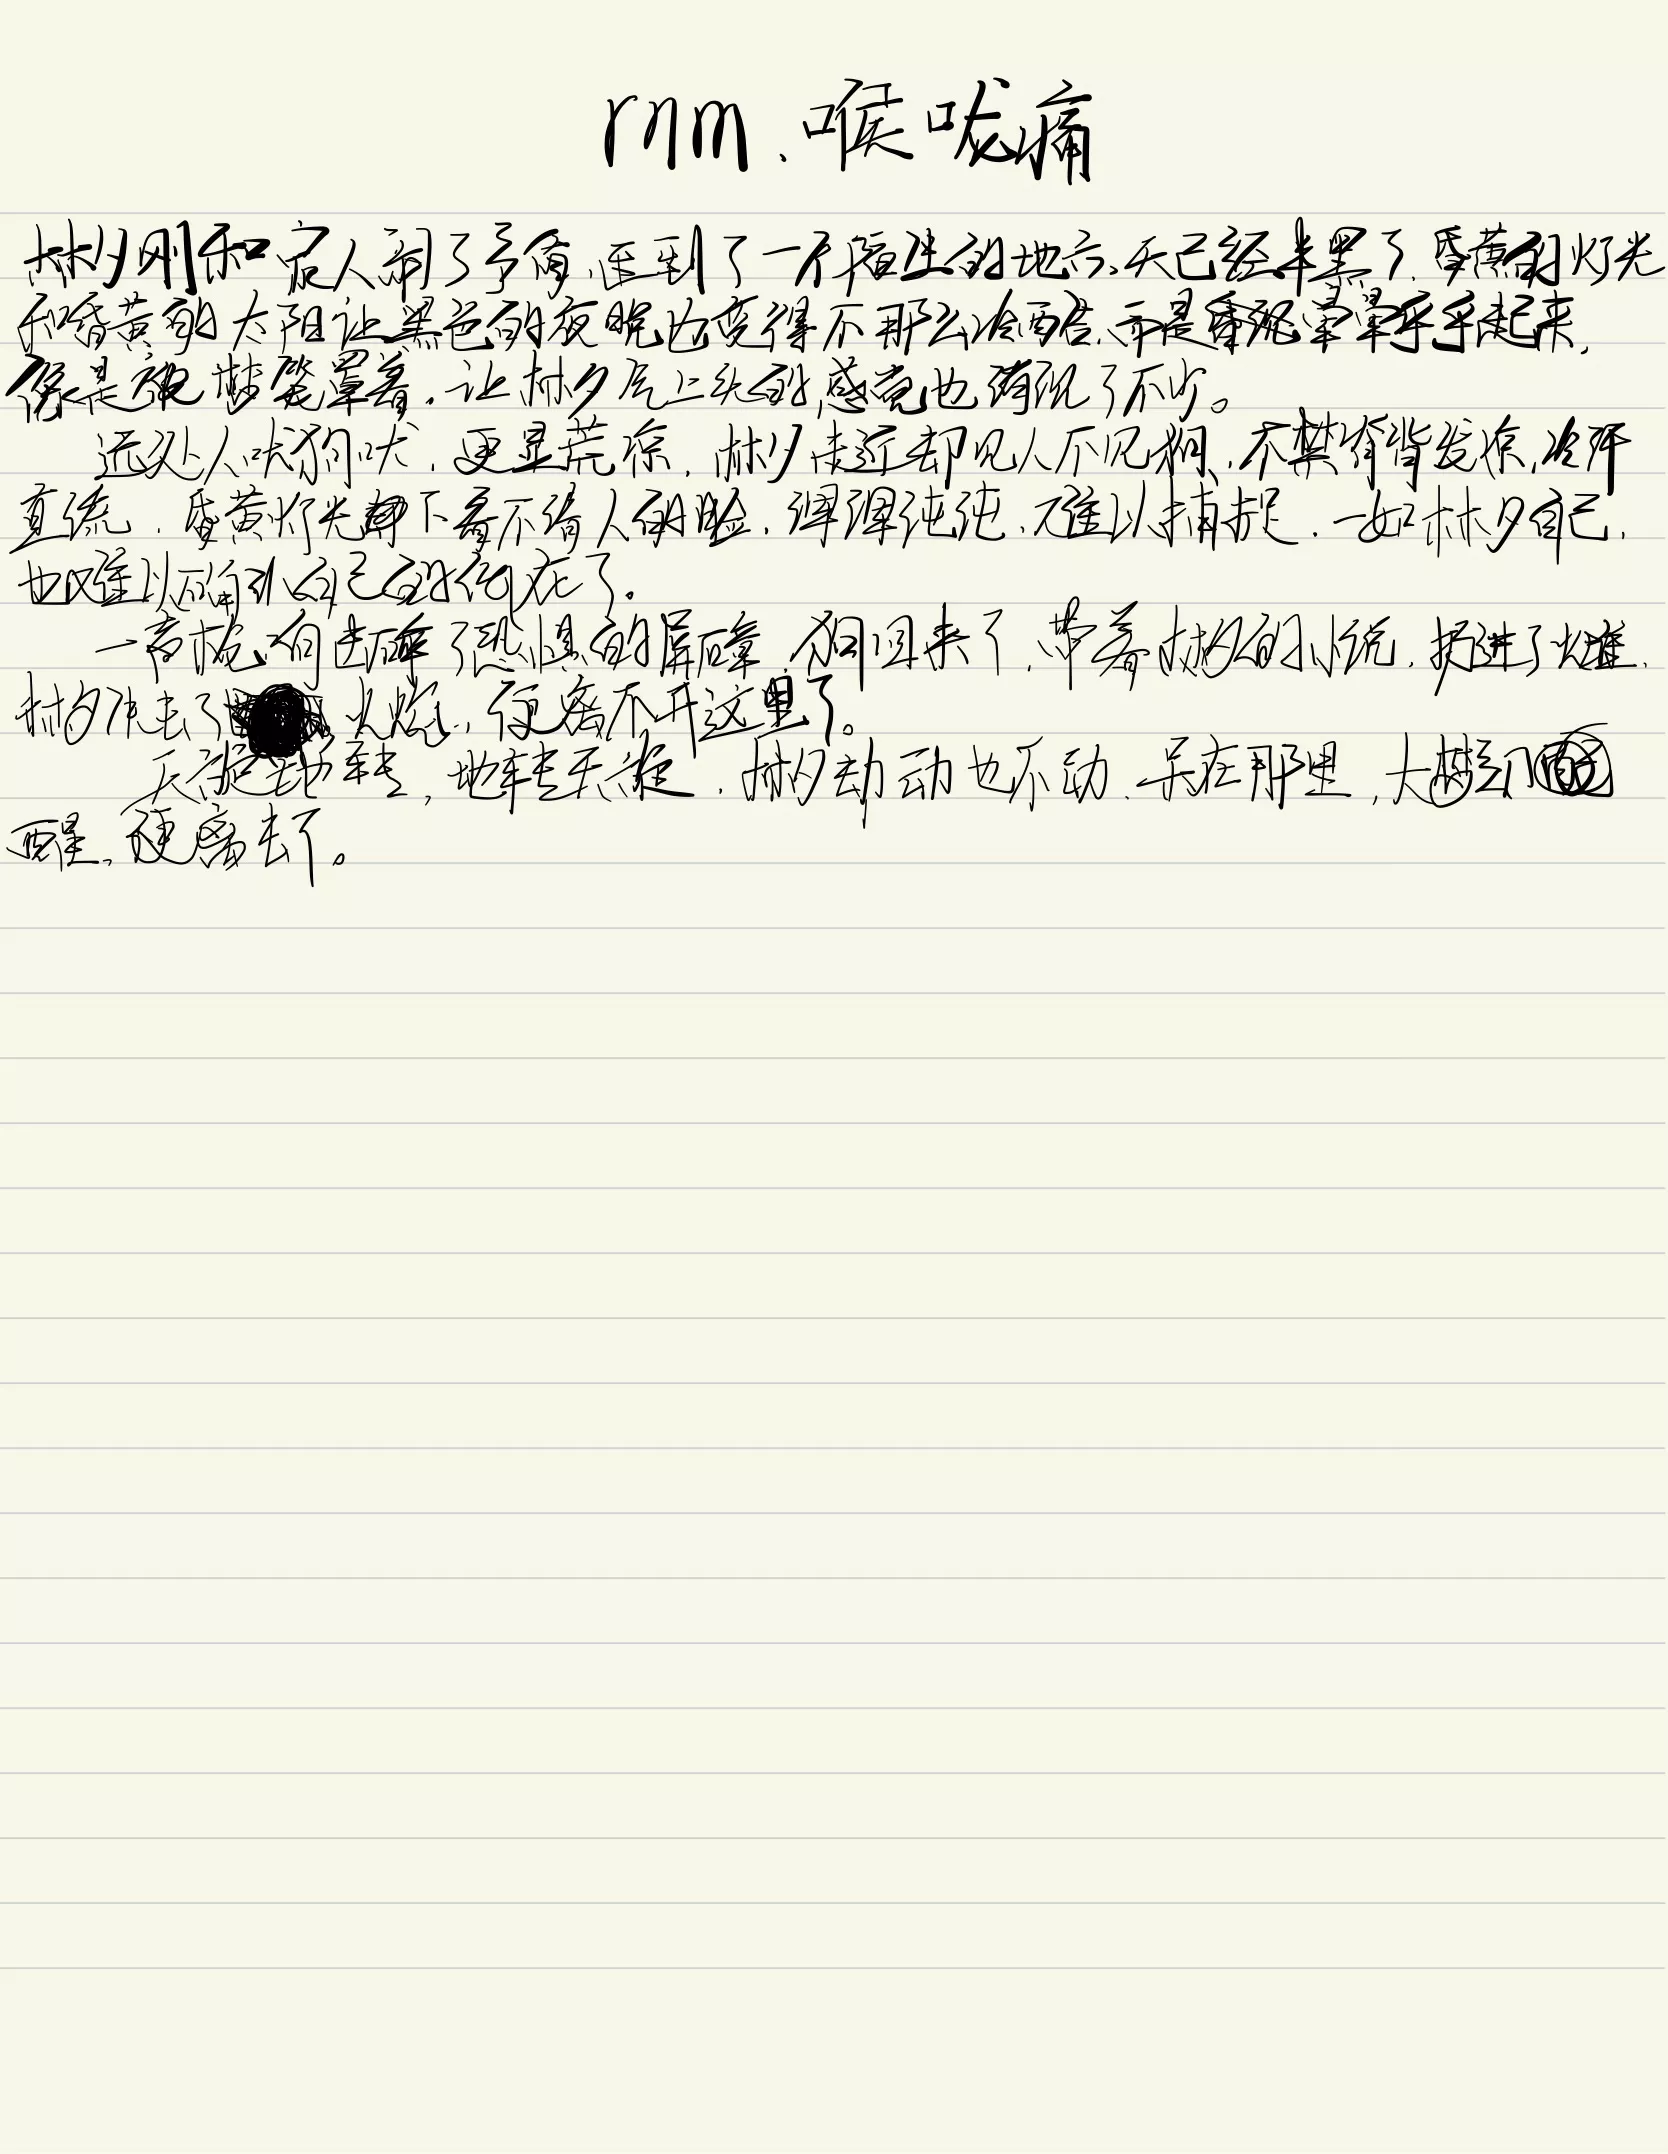 rnm、喉咙痛
林夕刚和家人闹了矛盾,逛到了一个陌生的地方、天已经半黑了,昏黄的灯光
和昏黄的太阳让黑色的夜晚也变得不那么冷酷、而是晕晕乎乎起来,
像是被梦笼罩着,让林夕气上头的感觉也消沉了不少。
远处人吠狗吠,更显荒凉,林夕走近却见人不见狗、不禁脊背发凉,冷汗
直流,昏黄灯光下看不清人的脸,浑浑沌沌、难以捕捉,一如林夕自己,
也难以确认自己的存在了。
一声枪响击碎了恐惧的屏障,狗回来了,带着林夕的小说,扔进了火堆,
林夕冲去了火堆,便离不开这里了。
天旋地转,地转天旋,林夕动动也不动、呆在那里,大梦初
醒、便离去了。